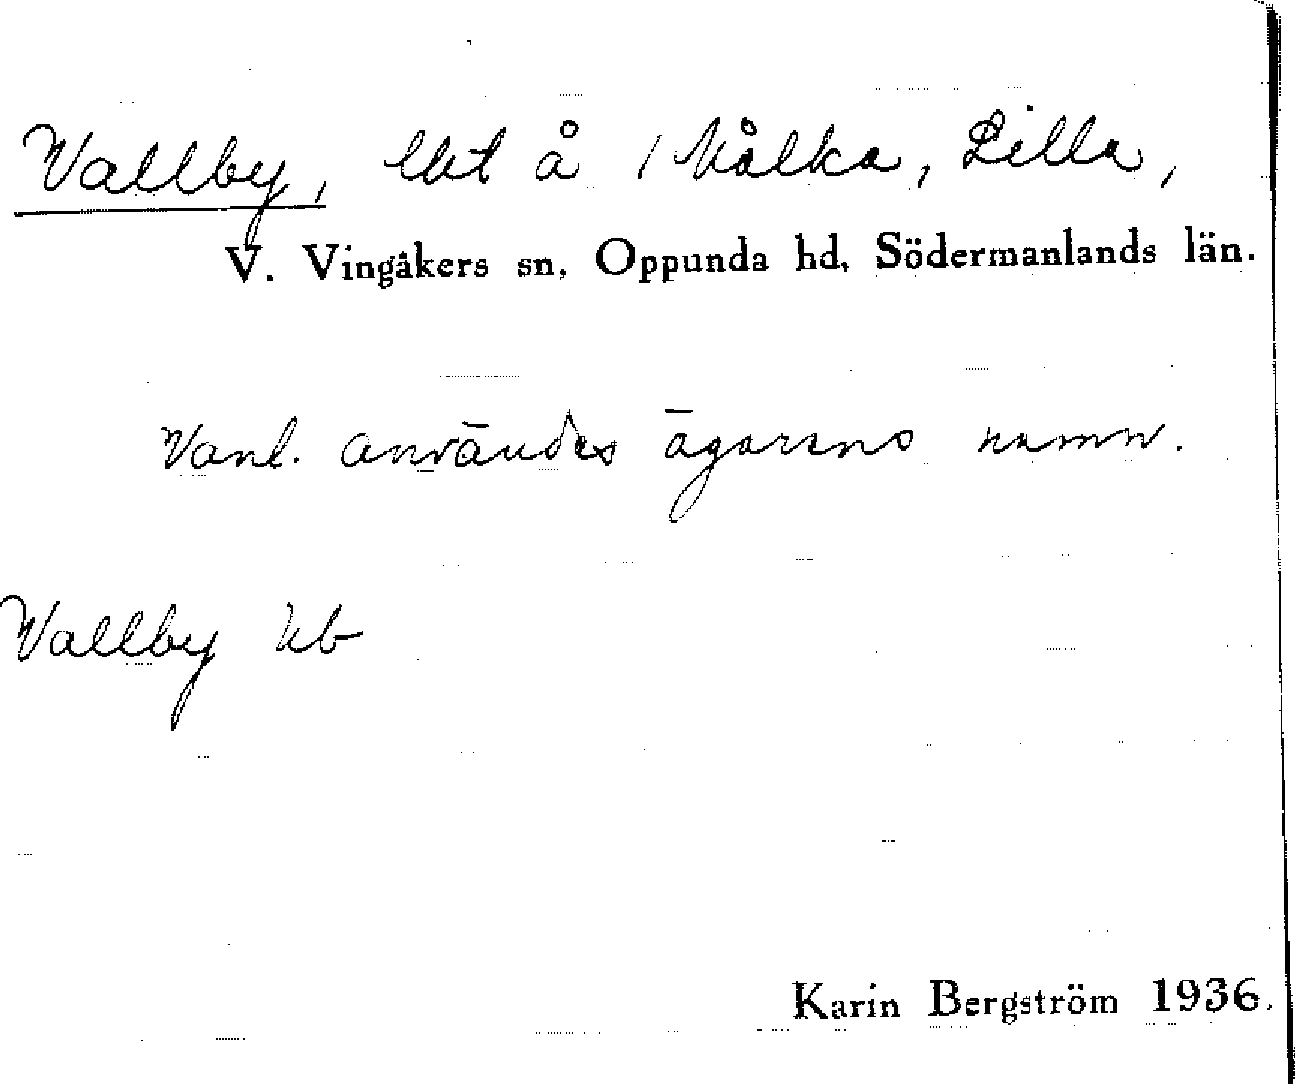 Vallby, lht å 1 Målka, Lilla,
V. Vingåkers sn, Oppunda hd, Södermanlands län.
Vanl. användes ägarens namn.
Vallby kb
Karin Bergström 1936.